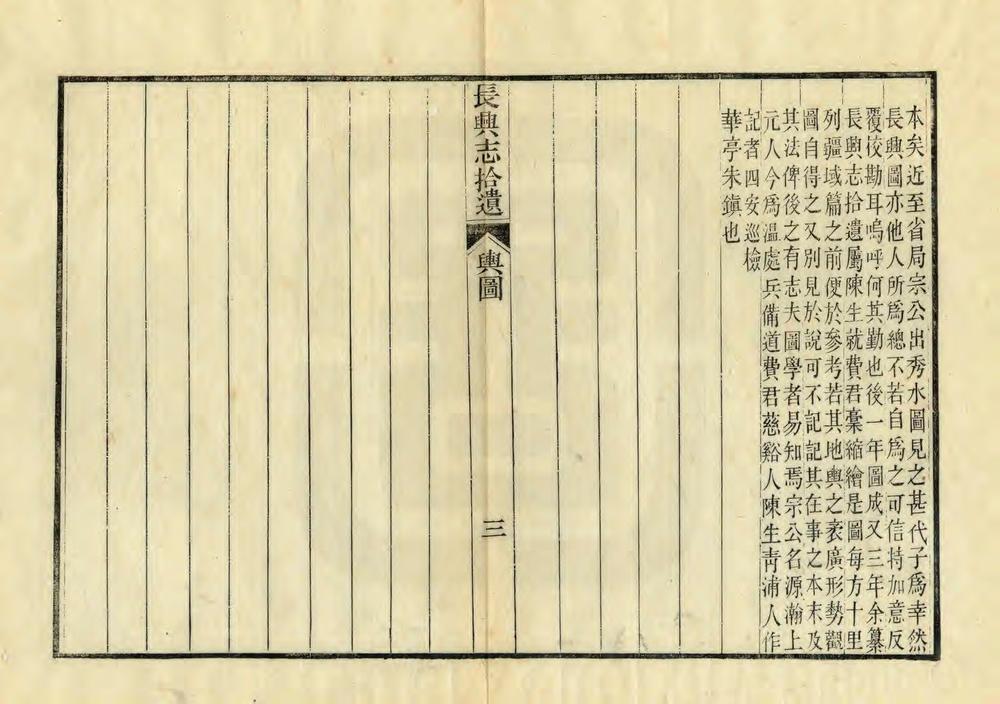 本矣近至省局宗公出秀水圖見之甚代子爲幸然
長興圖亦他人所爲總不若自爲之可信特加意反
覆校勘耳嗚呼何其勤也後一年圖成又三年余纂
長興志拾遺屬陳生就費君稾縮繪是圖每方十里
列疆域篇之前便於參考若其地輿之袤廣形勢觀
圖自得之又別見於說可不記記其在事之本末及
其法俾後之有志夫圖學者易知焉宗公名源瀚上
元人今爲溫處兵備道費君慈谿人陳生靑浦人作
記者四安巡檢
華亭朱鎭也
長興志拾遺
輿圖
三